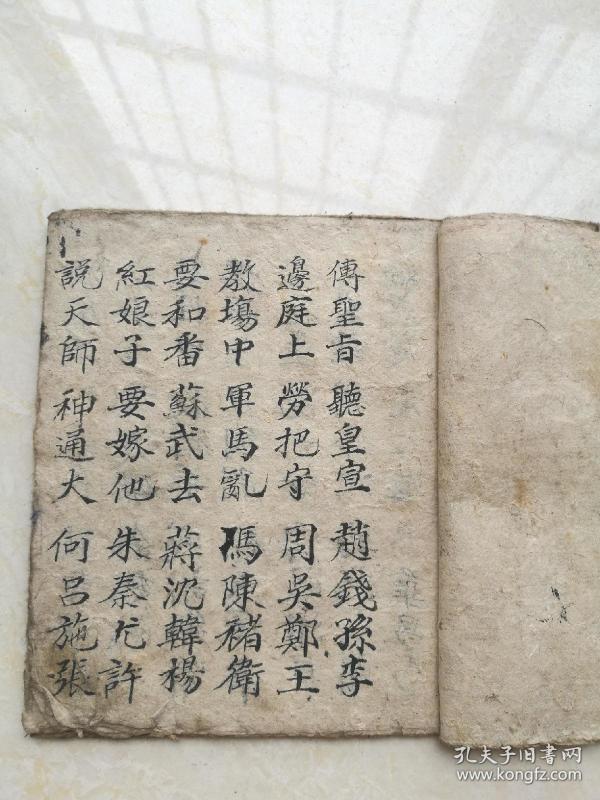 傳聖旨 聽皇宣 趙錢孫李
邊庭上 勞把守 周吳鄭王
教場中 軍馬亂 馮陳褚衛
要和番 蘇武去 蔣沈韓楊
紅娘子 要嫁他 朱秦尤許
說天師 神通大 何呂施張
孔夫子旧书网
www.kongfz.com